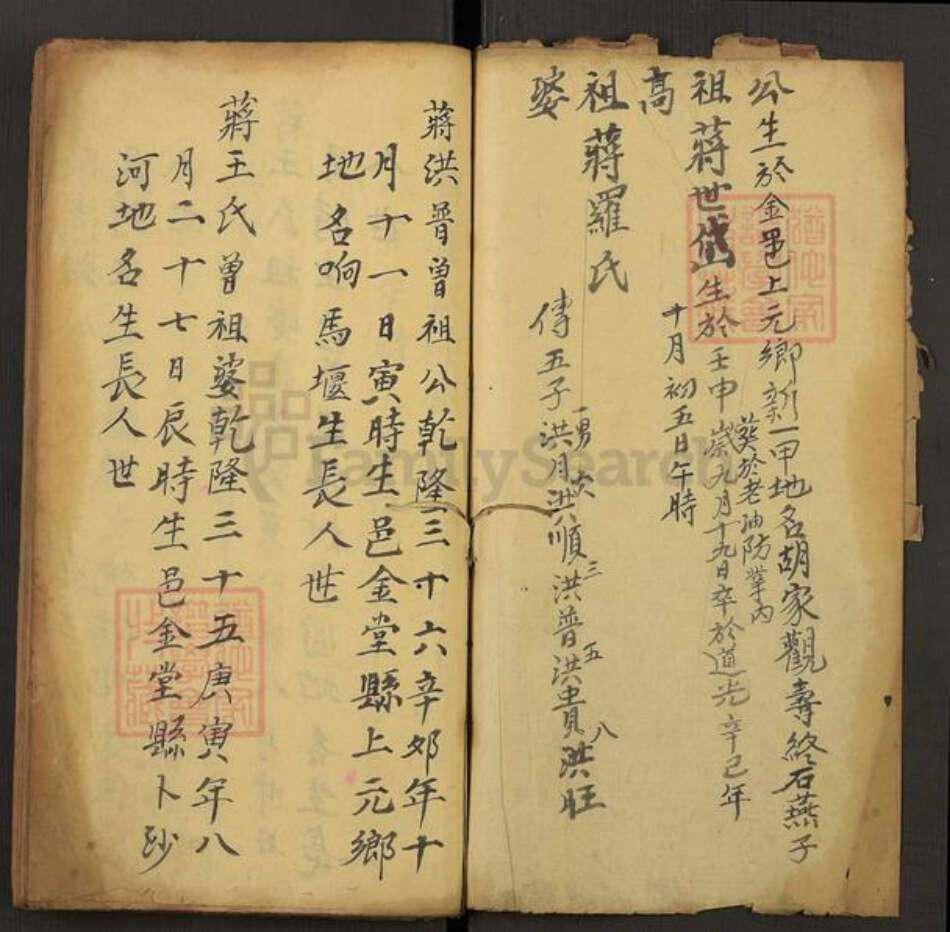 公生於金邑上元鄉新一甲地名胡家觀壽終石燕子
葬於老油防業內
祖蔣世岱生於壬申歲九月十九日卒於道光辛巳年
十月初五日午時
高
祖蔣羅氏
婆
傳五子洪月洪順洪普洪貴洪旺
一男 六 三 五 八
蔣洪普曾祖公乾隆三十六辛卯年十
月十一日寅時生邑金堂縣上元鄉
地名响馬堰生長人世
蔣王氏曾祖婆乾隆三十五庚寅年八
月二十七日辰時生邑金堂縣卜
河地名生長人世
FamilySearch